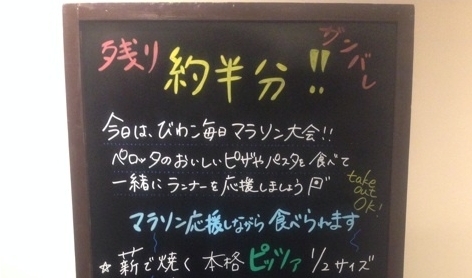 残り 約半分!! ガンバレ
今日は、びわこ毎日マラソン大会!!
ペロッタのおいしいピザやパスタを食べて
一緒にランナーを応援しましょう
take out OK!
マラソン応援しながら食べられます
☆ 薪で焼く 本格 ピッツァ 1/2サイズ